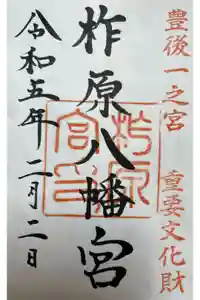 豊後一之宮　重要文化財
柞原八幡宮
令和五年二月二日